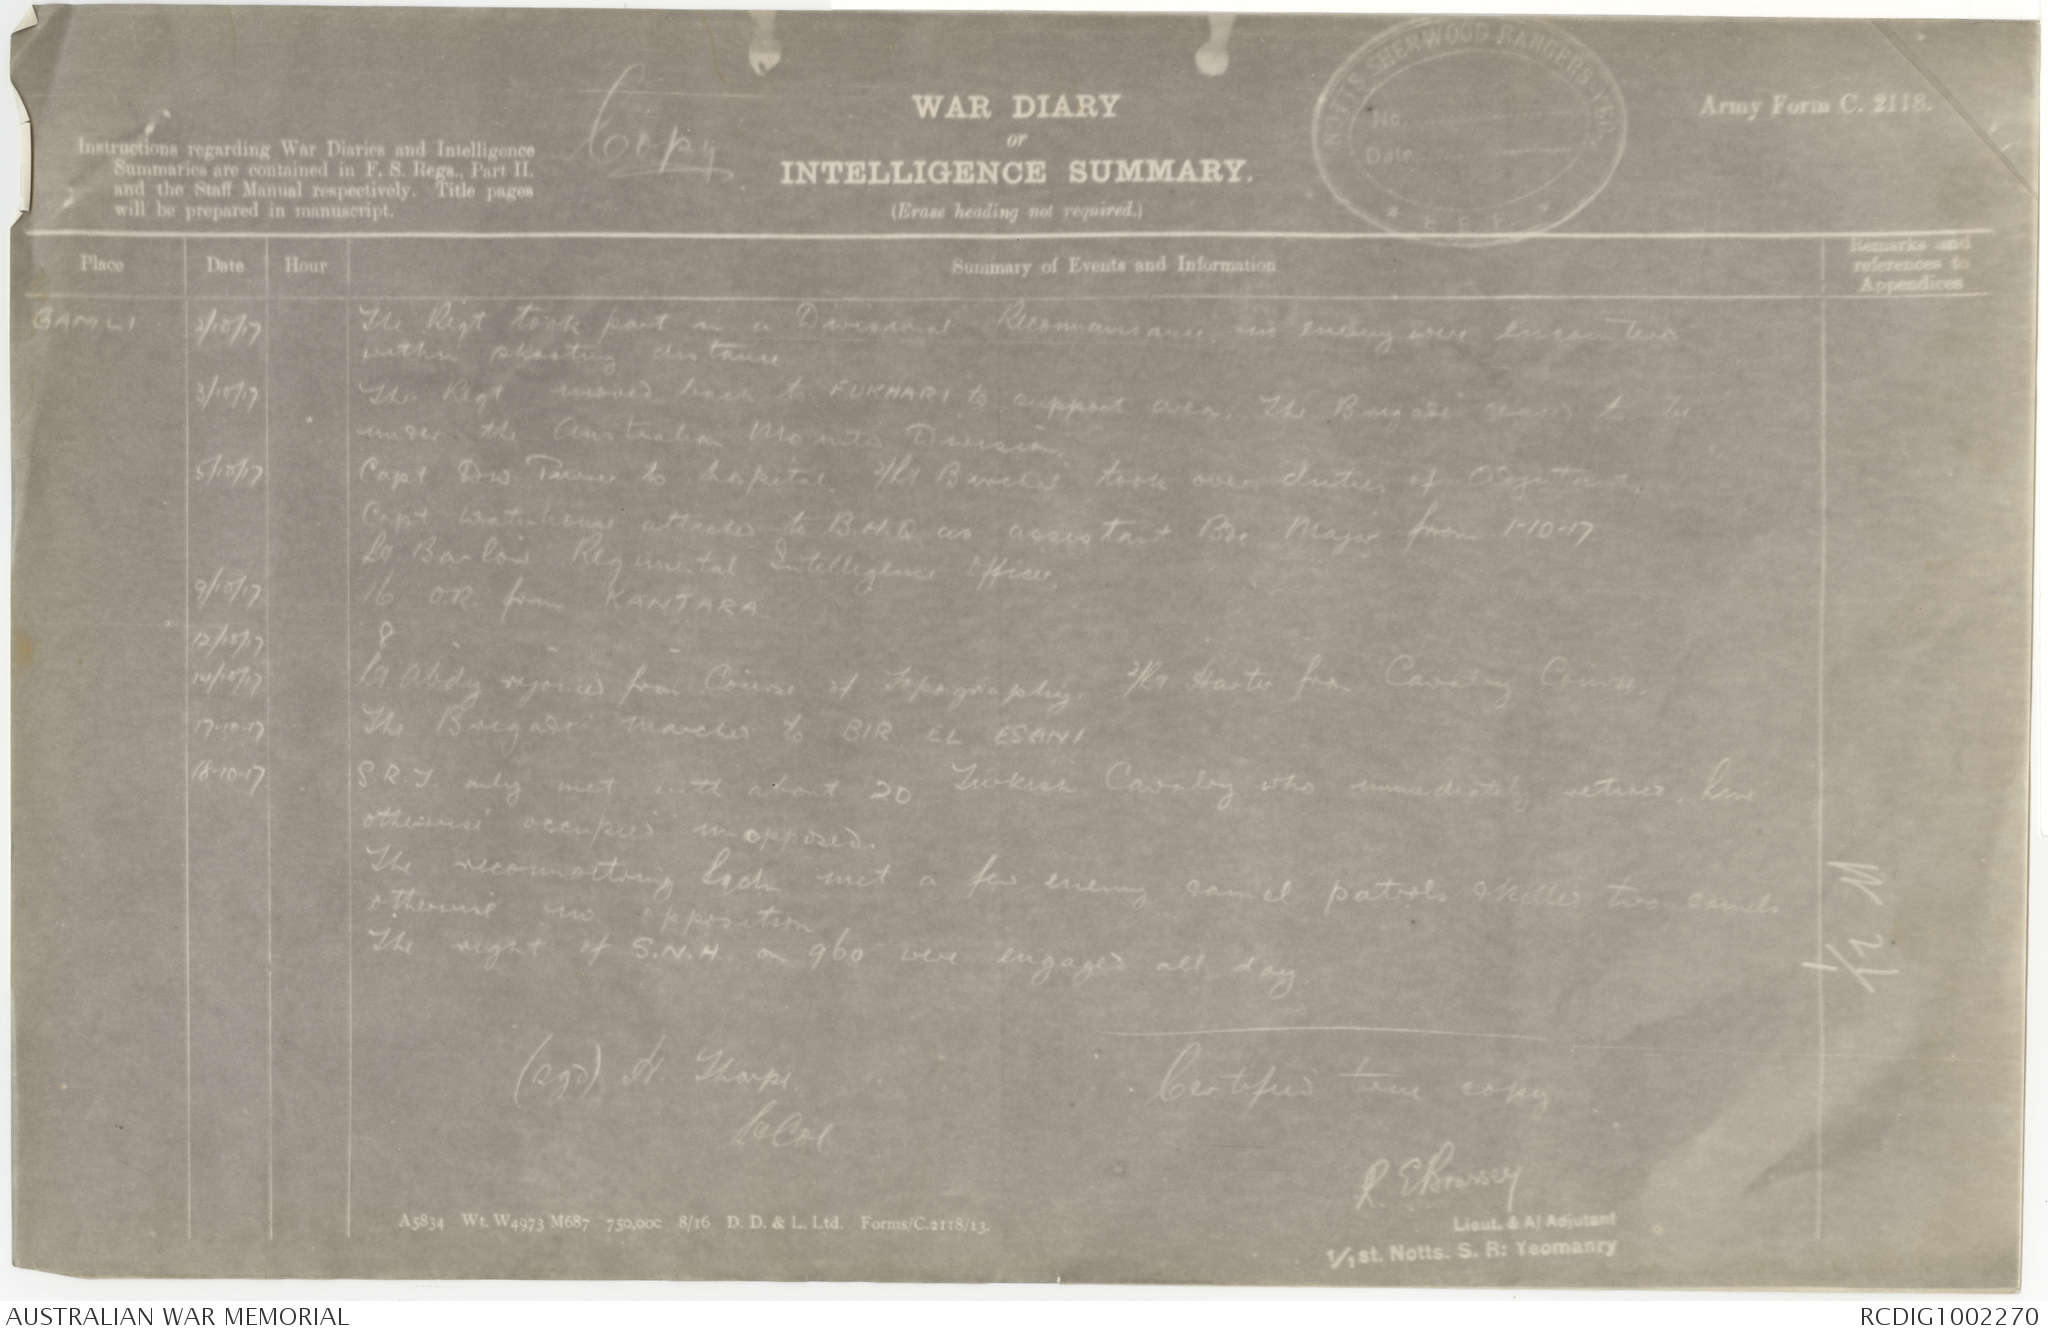 Copy
WAR DIARY
or
INTELLIGENCE SUMMARY.
(Erase heading not required.)
Army Form C. 2118.
Instructions regarding War Diaries and Intelligence
Summaries are contained in F. S. Regs., Part II.
and the Staff Manual respectively. Title pages
will be prepared in manuscript.
NOTTS SHERWOOD RANGERS YEO.
No.
Date
E. E. F.
Place Date Hour Summary of Events and Information Remarks and
references to
Appendices
GAMLI 2/10/17 The Regt took part in a Divisional Reconnaissance, no enemy were encountered
within shooting distance
3/10/17 The Regt moved back to FUKHARI to support area. The Brigade ceased to be
under the Australian Mounted Division.
5/10/17 Capt D.W. Turner to hospital. 2/Lt took over duties of Adjutant.
Capt Waterhouse attached to B.H.Q as assistant Bde Major from 1-10-17
Lt Barlow Regimental Intelligence Officer.
9/10/17 16 O.R. from KANTARA
12/10/17 8 " " "
14/10/17 Lt Abdy rejoined from Course of Topography. 2/Lt Harter from Cavalry Course.
17-10-17 The Brigade marched to BIR EL ESANI
18-10-17 S.R.Y. only met with about 20 Turkish Cavalry who immediately retired. Line
otherwise occupied unopposed.
The reconnoitring met a few enemy camel patrols & killed two camels
otherwise no opposition
The right of S.N.H. on 960 were engaged all day.
(sgd) H. Thorpe.
Lt Col.
Certified true copy
R. E Brassey
Lieut. & A/ Adjutant
1/1st. Notts. S. R: Yeomanry
A5834 Wt. W4973 M687 750,000 8/16 D. D. & L. Ltd. Forms/C.2118/13.
AUSTRALIAN WAR MEMORIAL
RCDIG1002270